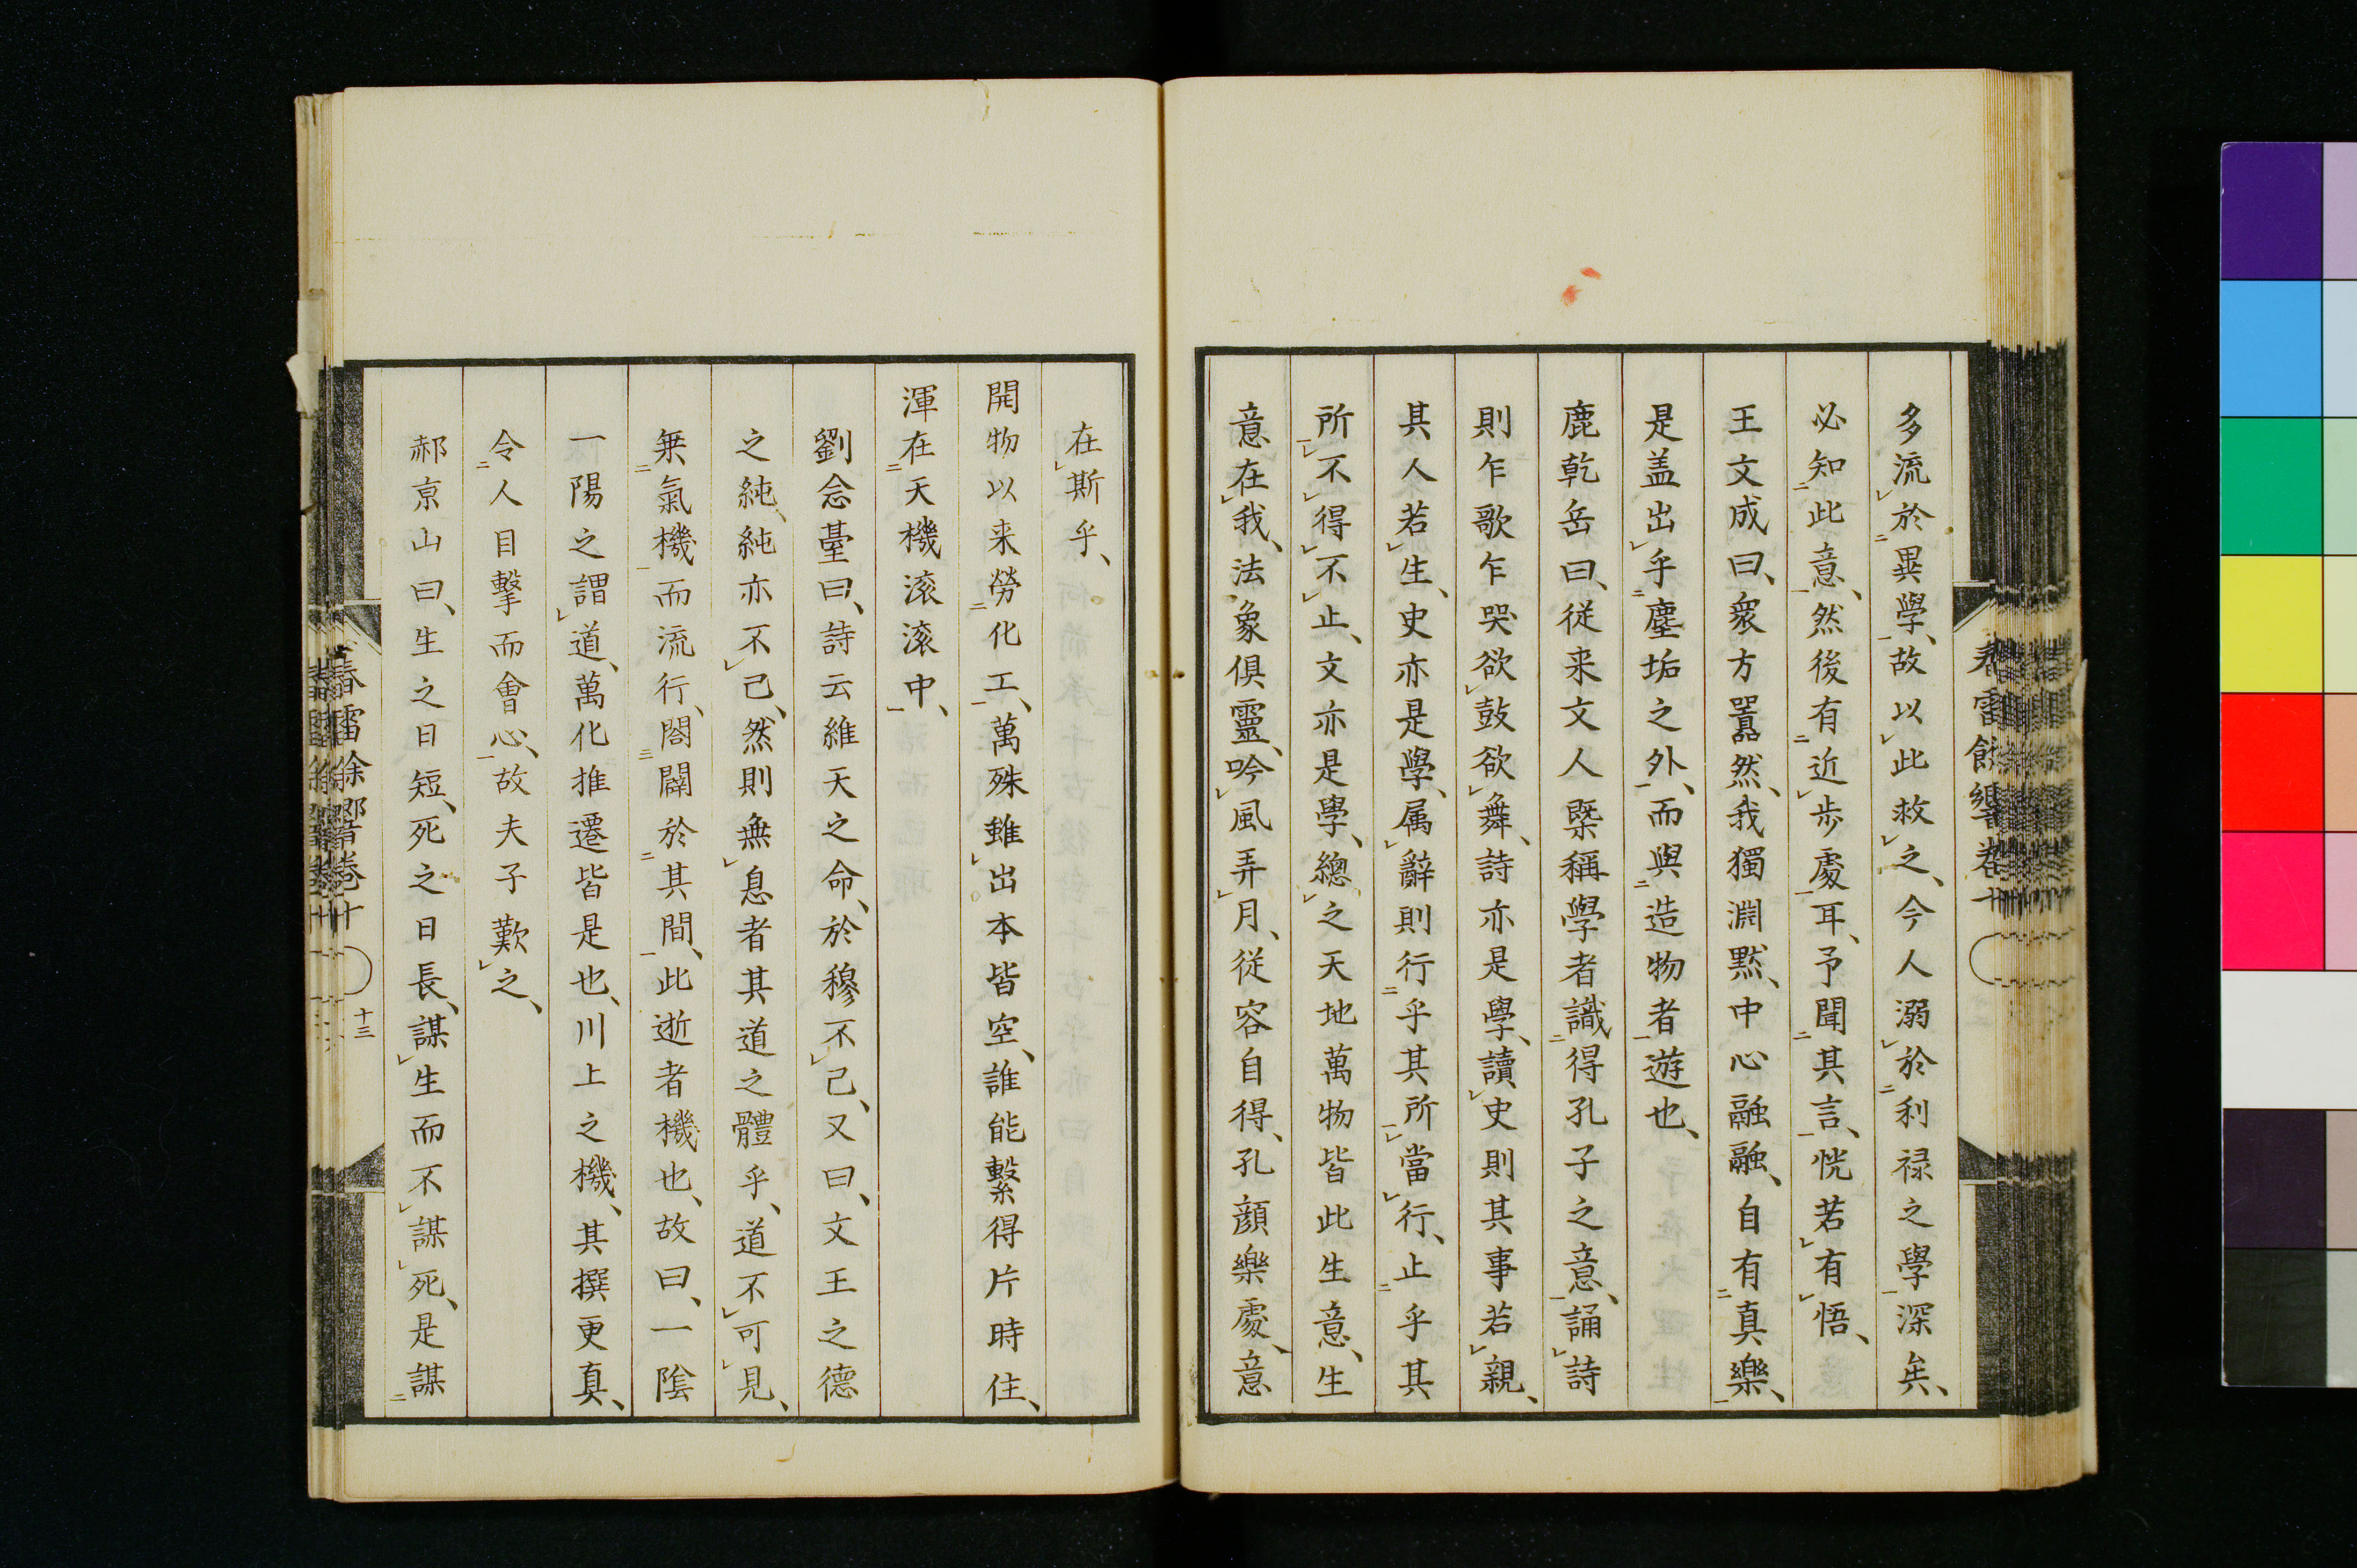 多流於異學、故以此救之、今人溺於利禄之學深矣、
必知此意、然後有近歩處耳、予聞其言、恍若有悟、
王文成曰、衆方囂然、我獨淵黙、中心融融、自有真樂、
是盖出乎塵垢之外、而與造物者遊也、
鹿乾岳曰、従来文人槩稱學者識得孔子之意、誦詩
則乍歌乍哭欲鼓欲舞、詩亦是學、讀史則其事若親、
其人若生、史亦是學、属辭則行乎其所當行、止乎其
所不得不止、文亦是學、總之天地萬物皆此生意、生
意在我、法象倶靈、吟風弄月、従容自得、孔顔樂處、意
在斯乎、
開物以来勞化工、萬殊雖出本皆空、誰能繫得片時住、
渾在天機滚滚中、
劉念臺曰、詩云維天之命、於穆不已、又曰、文王之德
之純、純亦不已、然則無息者其道之體乎、道不可見、
無氣機而流行、闔闢於其間、此逝者機也、故曰、一陰
一陽之謂道、萬化推遷皆是也、川上之機、其撰更真、
令人目擊而會心、故夫子歎之、
郝京山曰、生之日短、死之日長、謀生而不謀死、是謀
春雷餘響巻十
十三